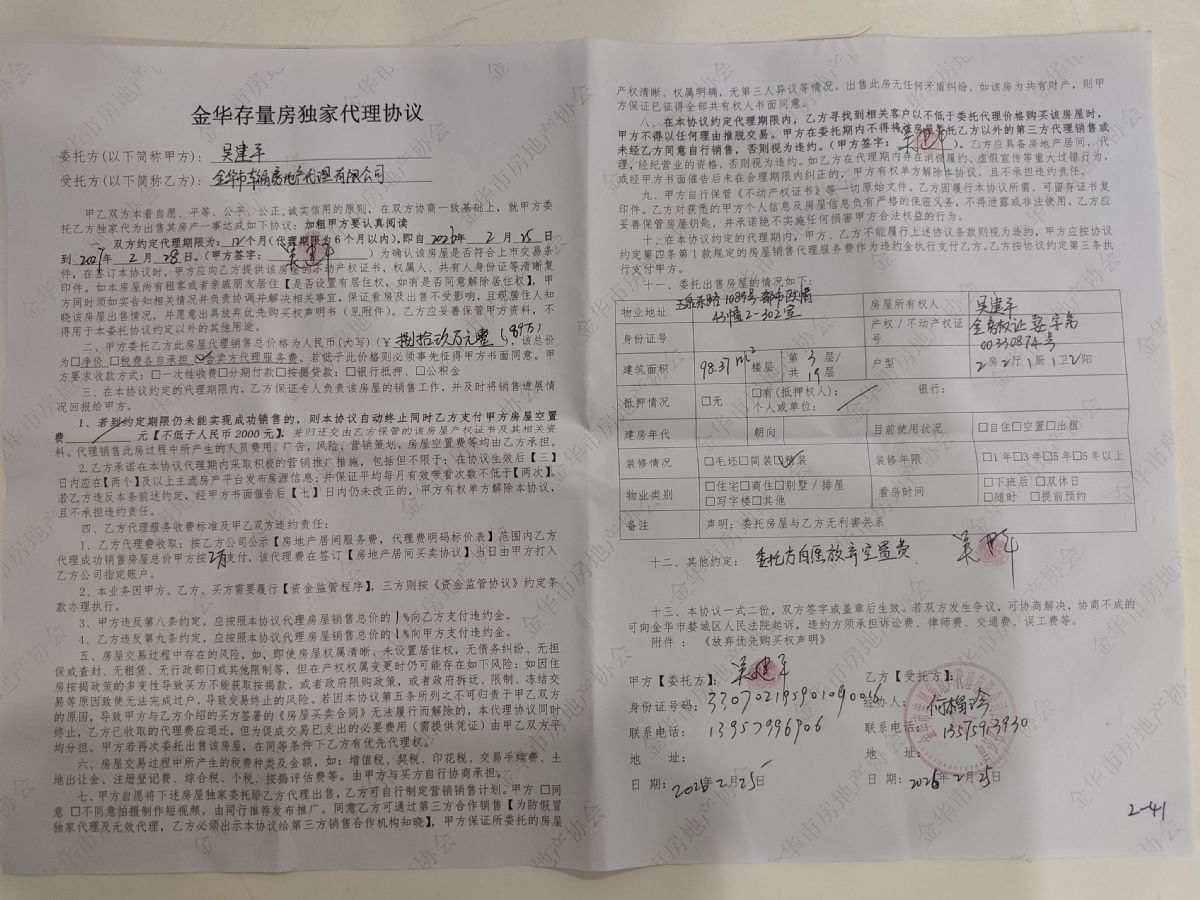 金华存量房独家代理协议
委托方(以下简称甲方): 吴建平
受托方(以下简称乙方): 金华市 房地产代理有限公司
甲乙双方本着自愿、平等、公平、公正,诚实信用的原则,在双方协商一致基础上,就甲方委
托乙方独家代为出售其房产一事达成如下协议:加粗甲方要认真阅读
一、双方约定代理期限为:12个月(代理期限为6个月以内),即自2026年2月25日
到2027年2月28日。(甲方签字: 吴建平 )为确认该房屋是否符合上市交易条
件,在签订本协议时,甲方应向乙方提供该房屋的不动产权证,权属人、共有人身份证等清晰复
印件。如本房屋尚有租客或者亲戚朋友居住【是否设置有居住权,如有是否同意解除居住权】,甲
方同时须如实告知相关情况并负责协调并解决相关事宜,保证看房及出售不受影响,且现居住人知
晓该房屋出售情况,并愿意出具放弃优先购买权声明书(见附件)。乙方应妥善保管甲方资料,不
得用于本委托协议约定以外的其他用途。
二、甲方委托乙方此房屋代理销售总价格为人民币(大写)(¥ 捌拾玖万元整(89万)。该总价
为□净价 □税费各自承担 ☑含卖方代理服务费。若低于此价格则必须事先征得甲方书面同意。甲
方要求收款方式:□一次性收费□分期付款□按揭贷款;□银行抵押、□公积金
三、在本协议约定的代理期限内,乙方保证专人负责该房屋的销售工作,并及时将销售进展情
况回报给甲方。
1、若到约定期限仍未能实现成功销售的,则本协议自动终止同时乙方支付甲方房屋空置
费 / 元【不低于人民币2000元】,并归还交由乙方保管的该房屋产权证书及其相关资
料。代理销售此房过程中所产生的人员费用、广告,风险,营销策划,房屋空置费等均由乙方承担。
2.乙方承诺在本协议代理期内采取积极的营销推广措施,包括但不限于:在协议生效后【三】
日内应在【两个】及以上主流房产平台发布房源信息;并保证平均每月有效带看次数不低于【两次】,
若乙方违反本条前述约定,经甲方书面催告后【七】日内仍未改正的,甲方有权单方解除本协议,
且不承担违约责任。
四、乙方代理服务收费标准及甲乙双方违约责任:
1、乙方代理费收取:按乙方公司公示【房地产居间服务费,代理费明码标价表】范围内乙方
代理成功销售房屋总价甲方按2%支付,该代理费在签订【房地产居间买卖协议】当日由甲方打入
乙方公司指定账户。
2、本业务因甲方、乙方、买方需要履行【资金监管程序】,三方则按《资金监管协议》约定条
款办理执行。
3、甲方违反第八条约定,应按照本协议代理房屋销售总价的1%向乙方支付违约金。
4、乙方违反第九条约定,应按照本协议代理房屋销售总价的1%向甲方支付违约金。
五、房屋交易过程中存在的风险,如、即使房屋权属清晰、未设置居住权,无债务纠纷、无担
保或查封、无租赁、无行政部门或其他限制等,但在产权权属变更时仍可能存在如下风险:如因住
房按揭政策的多变性导致买方不能获取按揭款,或者政府限购政策,或者政府拆迁、限制、冻结交
易等原因致使无法完成过户,导致交易终止的风险。若因本协议第五条所列之不可归责于甲乙双方
的原因,导致甲方与乙方介绍的买方签署的《房屋买卖合同》无法履行而解除的,本代理协议同时
终止,乙方已收取的代理费应退还,但为促成交易已支出的必要费用(需提供凭证)由甲乙双方平
均分担。甲方若再次委托出售该房屋,在同等条件下乙方有优先代理权。
六、房屋交易过程中所产生的税费种类及金额,如:增值税,契税、印花税,交易手续费、土
地出让金、注册登记费、综合税、个税、按揭评估费等。由甲方与买方自行协商承担。
七、甲方自愿将下述房屋独家委托给乙方代理出售,乙方可自行制定营销销售计划。甲方 □同
意 □不同意拍摄制作短视频,由同行推荐发布推广。同意乙方可通过第三方合作销售【为防假冒
独家代理及无效代理,乙方必须出示本协议给第三方销售合作机构知晓】,甲方保证所委托的房屋
产权清晰、权属明确,无第三人异议等情况。出售此房无任何矛盾纠纷,如该房为共有财产,则甲
方保证已征得全部共有权人书面同意。
八、在本协议约定代理期限内,乙方寻找到相关客户以不低于委托代理价格购买该房屋时,
甲方不得以任何理由推脱交易。甲方在委托期内不得将该房屋委托乙方以外的第三方代理销售或
未经乙方同意自行销售,否则视为违约。(甲方签字: 吴建平 )。乙方应具备房地产居间,代
理,经纪营业的资格,否则视为违约。如乙方在代理期内存在消极履约、虚假宣传等重大过错行为,
或经甲方书面催告后未在合理期限内纠正的,甲方有权单方解除本协议,且不承担违约责任。
九、甲方自行保管《不动产权证书》等一切原始文件。乙方因履行本协议所需,可留存证书复
印件。乙方对获悉的甲方个人信息及房屋信息负有严格的保密义务,不得泄露或非法使用。乙方应
妥善保管房屋钥匙,并承诺绝不实施任何损害甲方合法权益的行为。
十、在本协议约定的代理期内,甲方、乙方不能履行上述协议条款则视为违约,甲方应按协议
约定第四条第1款规定的房屋销售代理服务费作为违约金执行支付乙方。乙方按协议约定第三条执
行支付甲方。
十一、委托出售房屋的情况如下:
物业地址 玉泉东路1089号都市欧情43幢2-302室 房屋所有权人 吴建平
身份证号 产权/不动产权证号 金房权证婺字第00330874号
建筑面积 98.37m² 楼层 第3层/共19层 户型 2房2厅1厨1卫2阳
抵押情况 □无 □有(抵押权人): 银行:
个人或单位:
建房年代 朝向 目前使用状况 □自住□空置□出租
装修情况 □毛坯□简装☑精装 装修年限 □1年□3年□5年□5年以上
物业类别 □住宅□商住□别墅/排屋 □写字楼□其他 看房时间 □下班后 □双休日 □随时 □提前预约
备注 声明:委托房屋与乙方无利害关系
十二、其他约定: 委托方自愿放弃空置费 吴建平
十三、本协议一式二份,双方签字或盖章后生效。若双方发生争议,可协商解决,协商不成的
可向金华市婺城区人民法院起诉,违约方须承担诉讼费、律师费、交通费、误工费等。
附件:《放弃优先购买权声明》
甲方【委托方】: 吴建平 乙方【受托方】:
身份证号码: 330702195901090056 经办人:
联系电话: 13957996906 联系电话: 13575913930
地 址: 地 址:
日期: 2026年2月25日 日期: 2026年2月25日
2-41